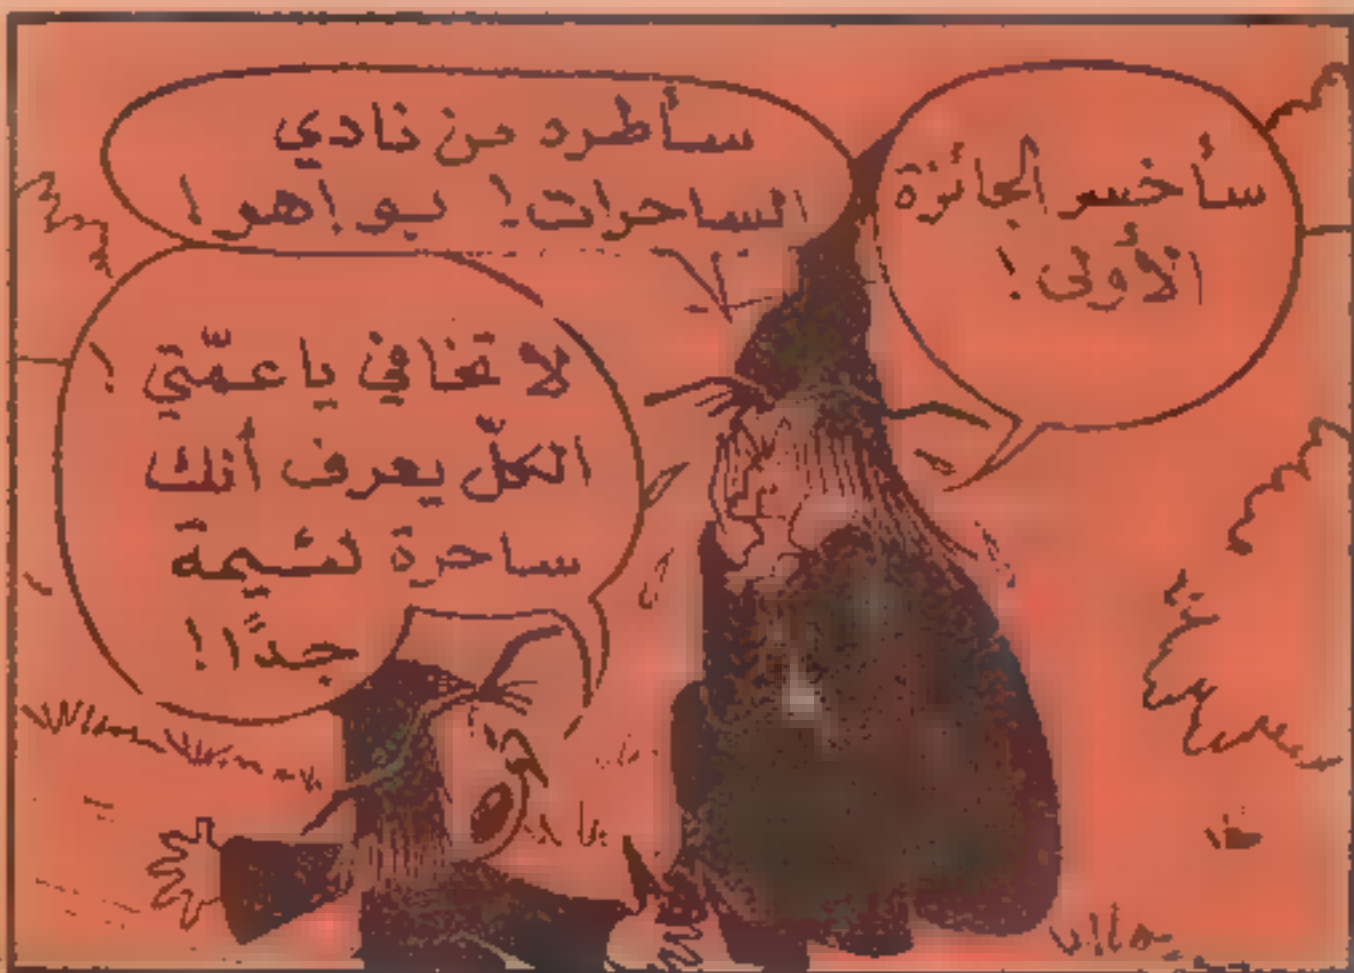 سأخسر الجائزة
الأولى!
سأطرد من نادي
الساحرات! بواهو!
لا تخافي يا عمّتي!
الكلّ يعرف أنك
ساحرة لئيمة
جدًا!